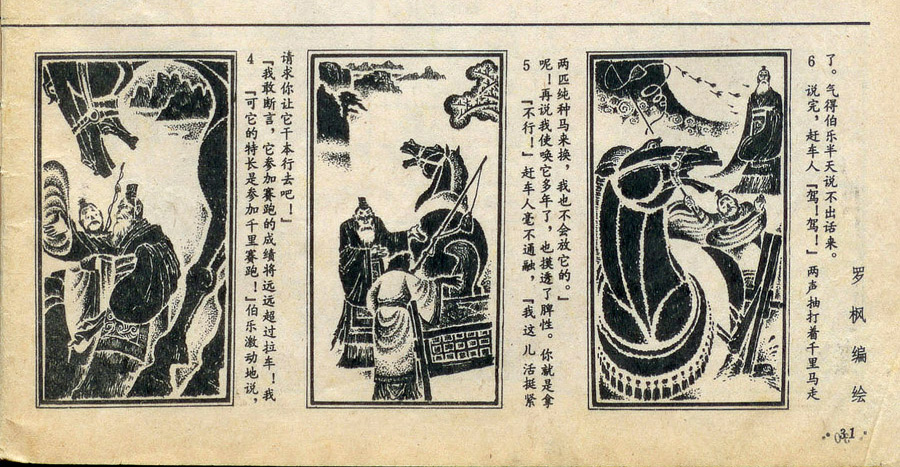 4 『可它的特长是参加千里赛跑！』伯乐激动地说，
『我敢断言，它参加赛跑的成绩将远远超过拉车！我
请求你让它干本行去吧！』
5 『不行！』赶车人毫不通融，『我这儿活挺紧
呢！再说我使唤它多年了，也摸透了脾性。你就是拿
两匹纯种马来换，我也不会放它的。』
6 说完，赶车人『驾！驾！』两声抽打着千里马走
了。气得伯乐半天说不出话来。
罗枫编绘
·31·